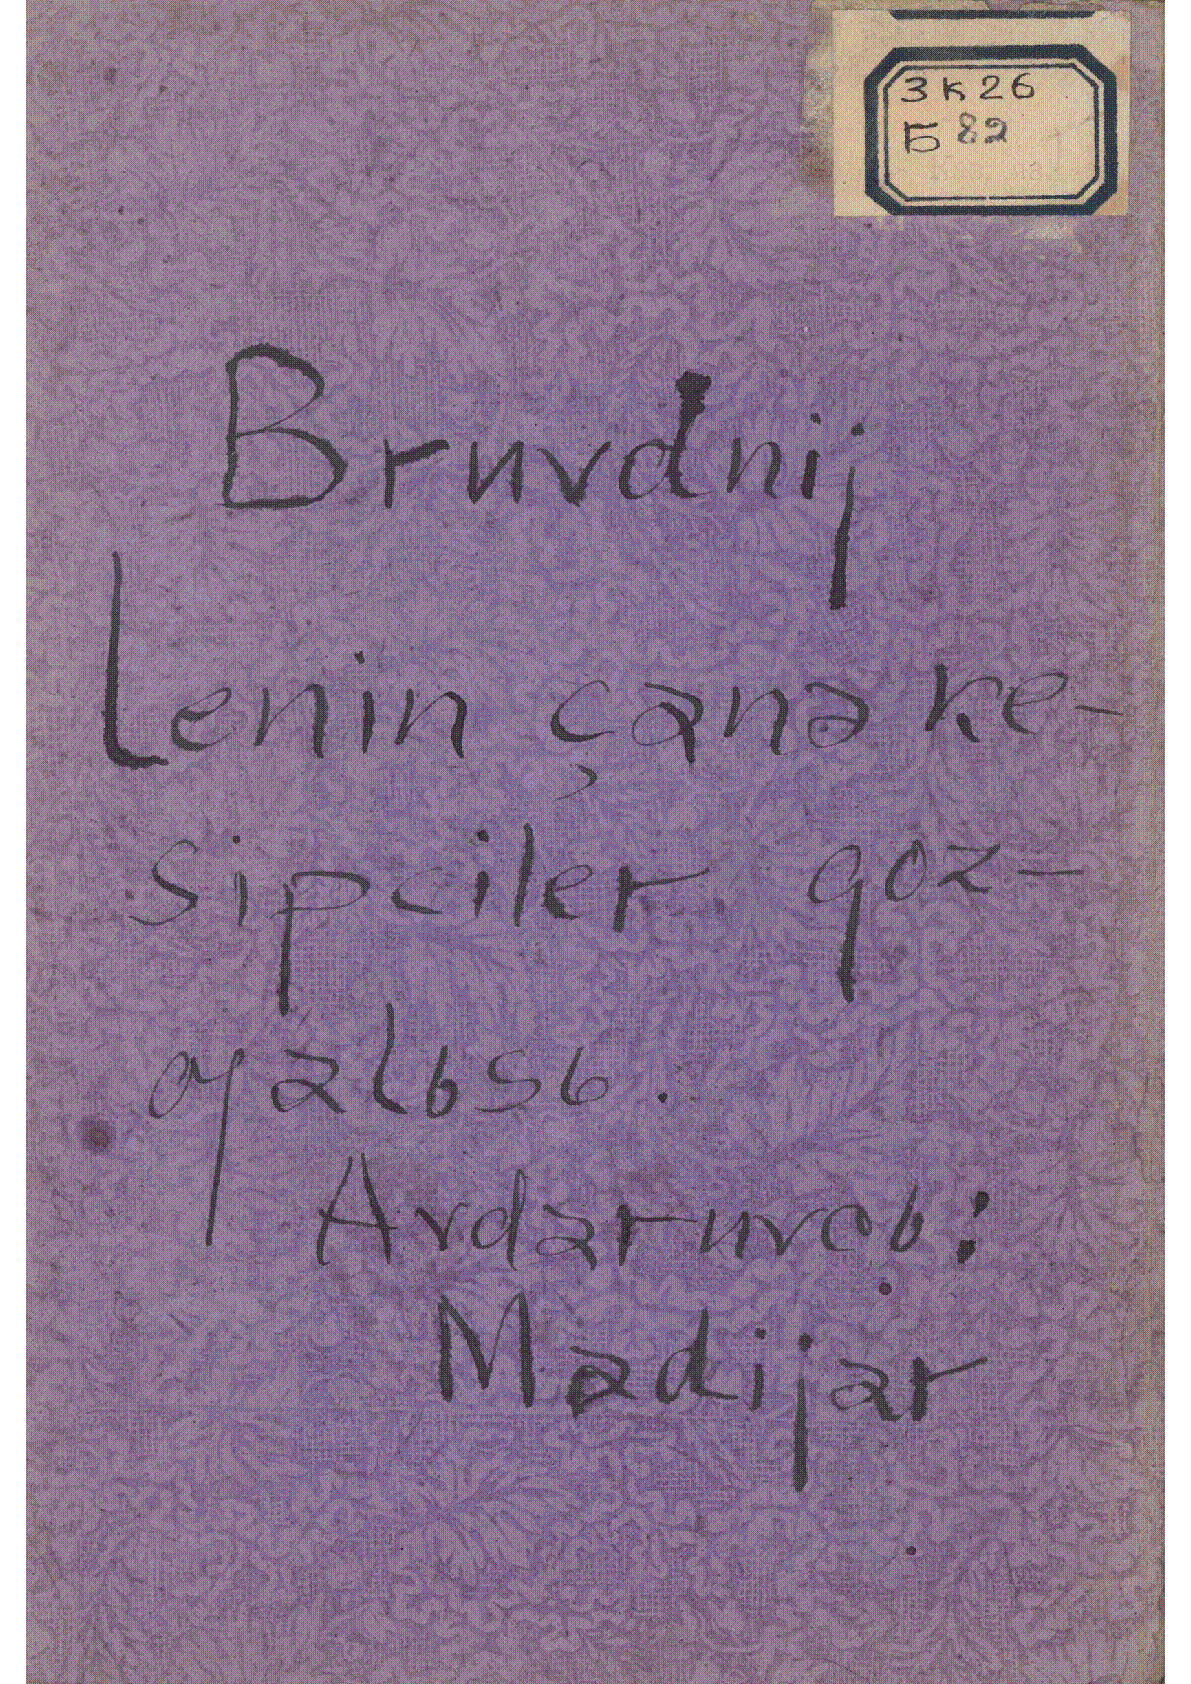 3к26
Б 82
Bruvdnij
Lenin çana ke-
sipciler qoz-
ƣalьsь.
Avdaruvcь:
Madijar